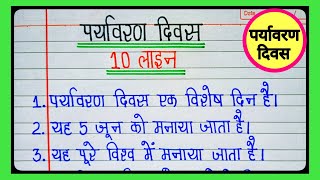 पर्यावरण दिवस
10 लाइन
पर्यावरण
दिवस
1. पर्यावरण दिवस एक विशेष दिन है।
2. यह 5 जून को मनाया जाता है।
3. यह पूरे विश्व में मनाया जाता है।